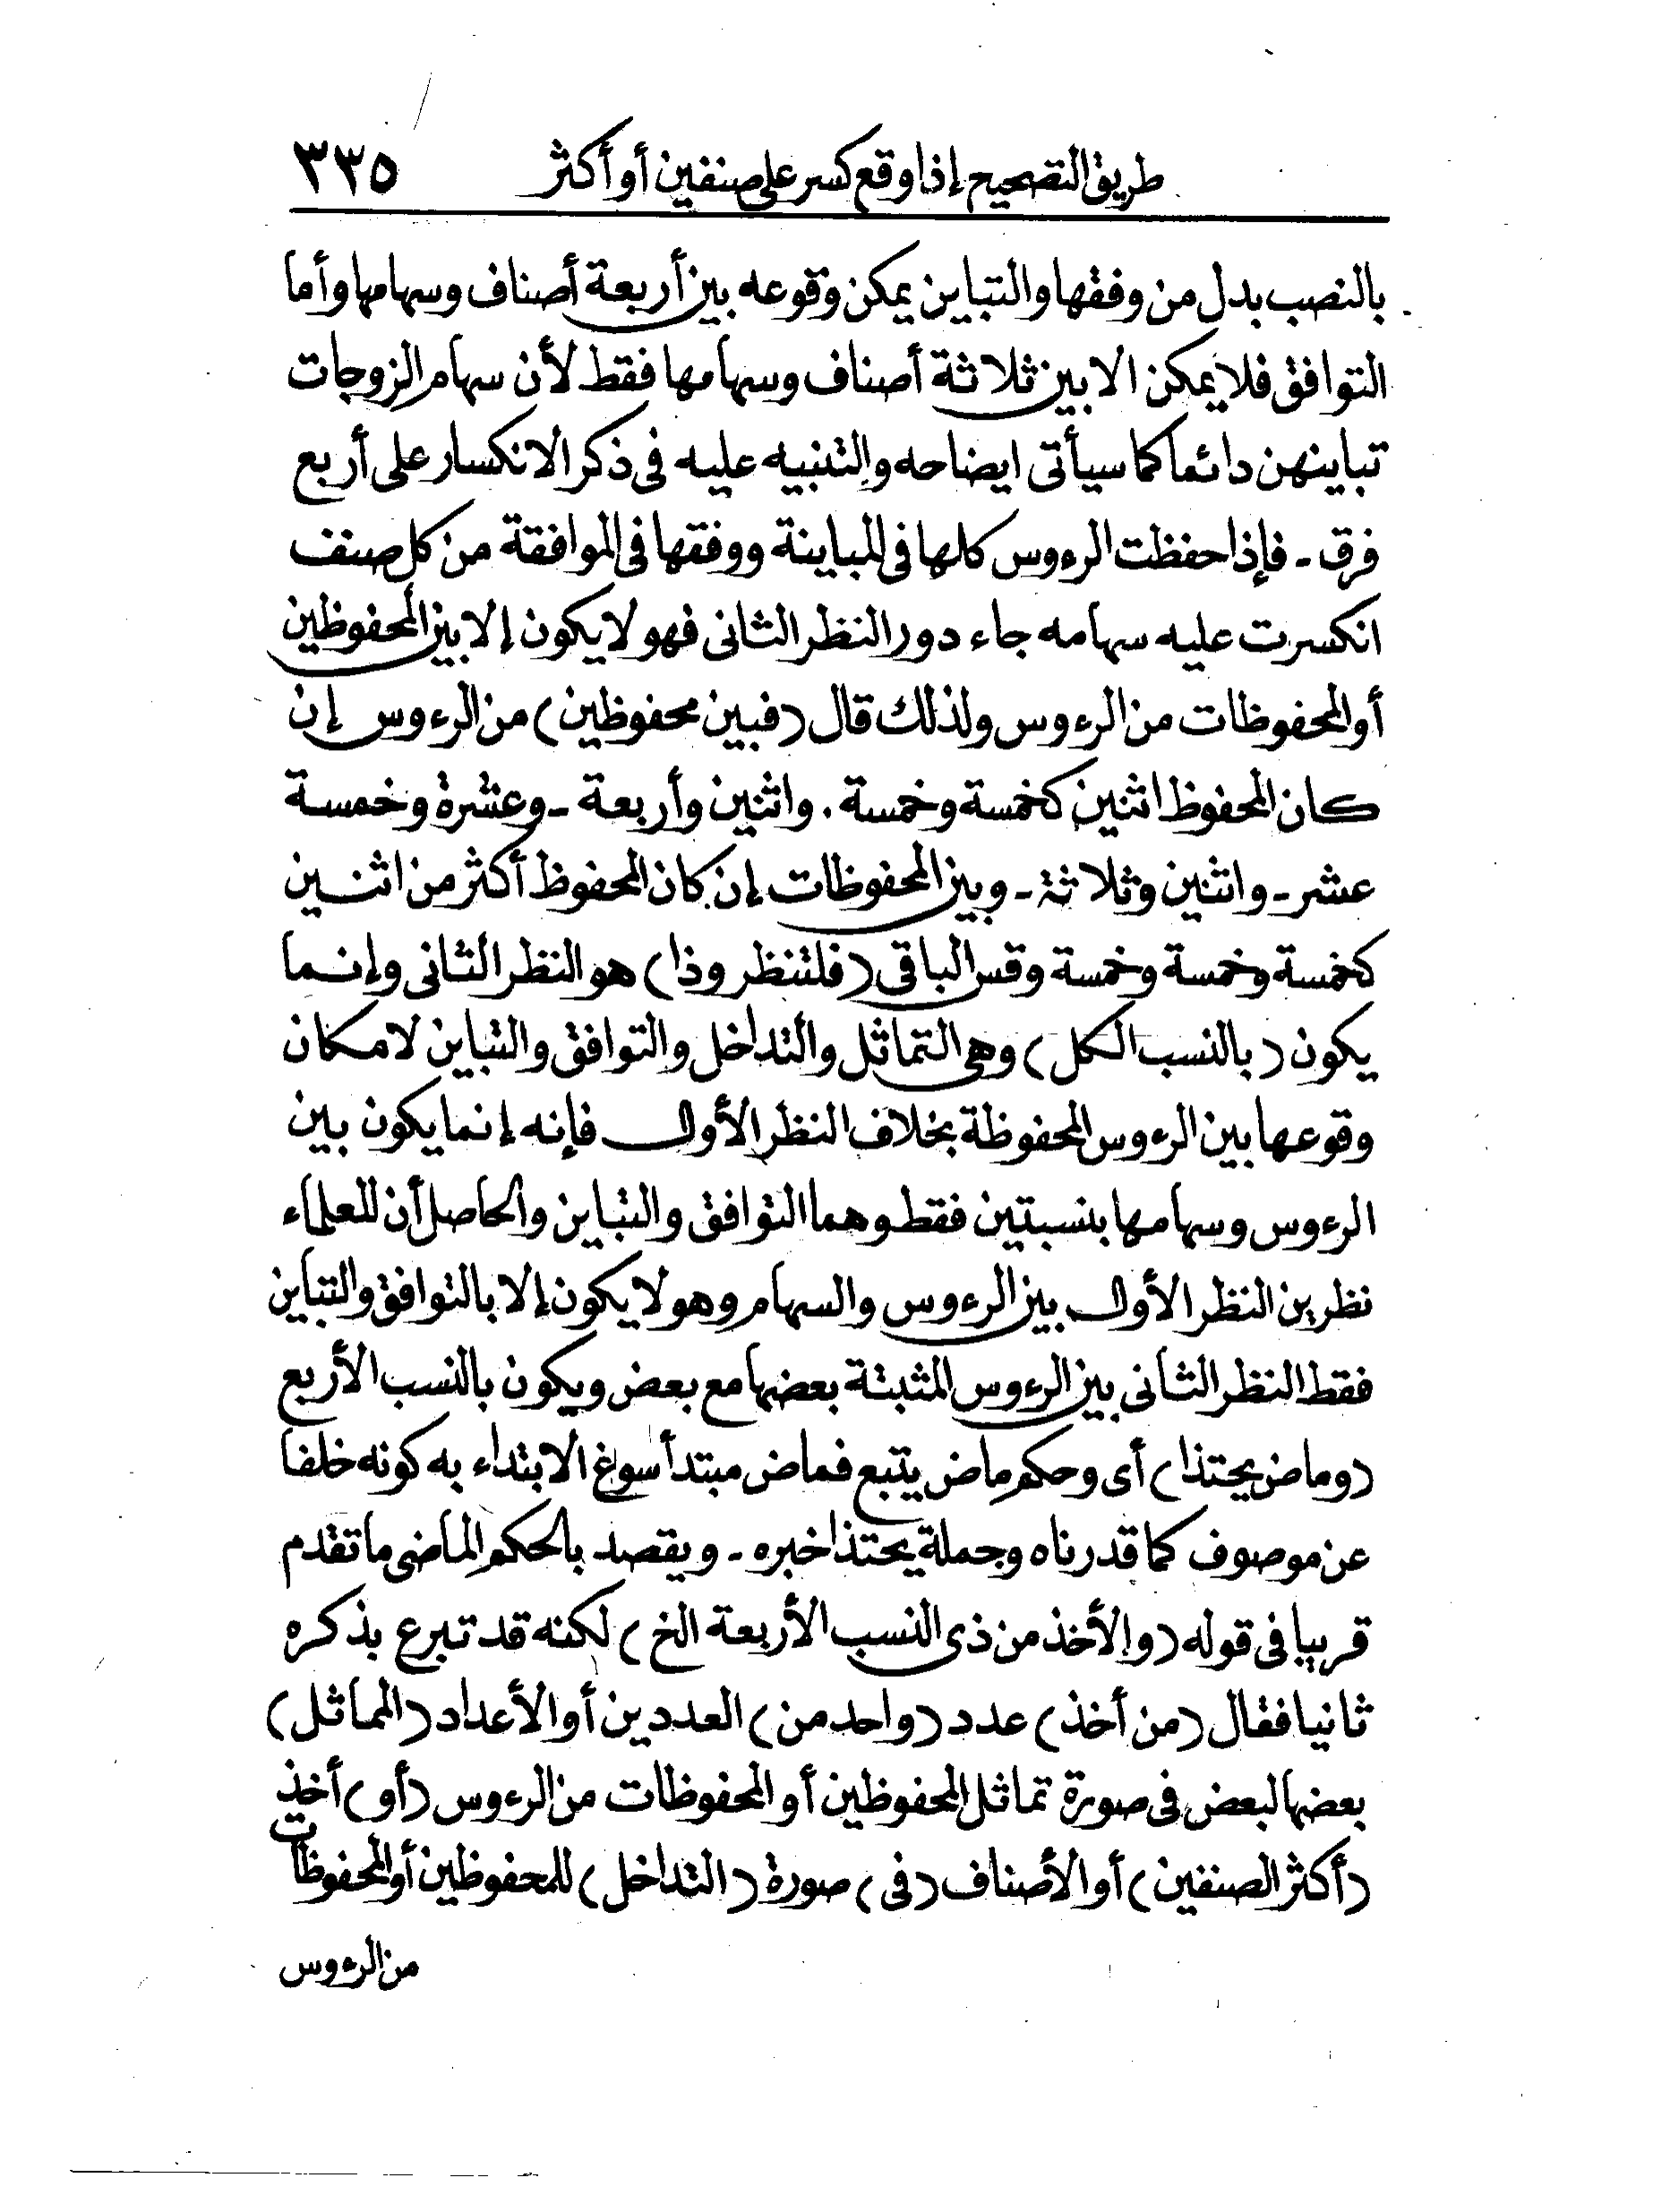 طريق التصحيح إذا وقع كسر على صنفين أو أكثر ٣٣٥
بالنصب بدل من وفقها والتباين يمكن وقوعه بين أربعة أصناف وسهامها وأما
التوافق فلا يمكن الا بين ثلاثة أصناف وسهامها فقط لأن سهام الزوجات
تباينهن دائما كما سيأتى ايضاحه والتنبيه عليه فى ذكر الانكسار على أربع
فرق - فإذا حفظت الرءوس كلها فى المباينة ووفقها فى الموافقة من كل صنف
انكسرت عليه سهامه جاء دور النظر الثانى فهو لا يكون إلا بين المحفوظين
أو المحفوظات من الرءوس ولذلك قال (فبين محفوظين) من الرءوس إن
كان المحفوظ اثنين كخمسة وخمسة . واثنين وأربعة - وعشرة وخمسة
عشر - واثنين وثلاثة - وبين المحفوظات إن كان المحفوظ أكثر من اثنين
كخمسة وخمسة وخمسة وقس الباقى (فلتنظر وذا) هو النظر الثانى وإنما
يكون (بالنسب الكل) وهى التماثل والتداخل والتوافق والتباين لامكان
وقوعها بين الرءوس المحفوظة بخلاف النظر الأول فإنه إنما يكون بين
الرءوس وسهامها بنسبتين فقط وهما التوافق والتباين والحاصل أن للعلماء
نظرين النظر الأول بين الرءوس والسهام وهو لا يكون إلا بالتوافق والتباين
فقط النظر الثانى بين الرءوس المثبتة بعضها مع بعض ويكون بالنسب الأربع
(وماض يحتذا) أى وحكم ماض يتبع فماض مبتدأ سوغ الابتداء به كونه خلفا
عن موصوف كما قدرناه وجملة يحتذا خبره - ويقصد بالحكم الماضى ما تقدم
قريبا فى قوله (والأخذ من ذى النسب الأربعة الخ) لكنه قد تبرع بذكره
ثانيا فقال (من أخذ) عدد (واحد من) العددين أو الأعداد (المماثل)
بعضها لبعض فى صورة تماثل المحفوظين أو المحفوظات من الرءوس (أو) أخذ
(أكثر الصنفين) أو الأصناف (فى) صورة (التداخل) للمحفوظين أو المحفوظات
من الرءوس